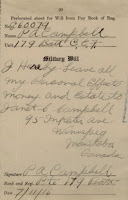 20
Perforated Sheet for Will from Pay Book of Reg.
No. 260079
Name P A Campbell
Unit 179 Batt C.E.F.
Military Will
I Hereby Leave all
my Personal Effects
money and Estate to
Janet C Campbell
95 Street
Winnipeg
Manitoba
Canada
Signature P A Campbell
Rank and Reg. Pte 179 Batt
Date 7/11/16